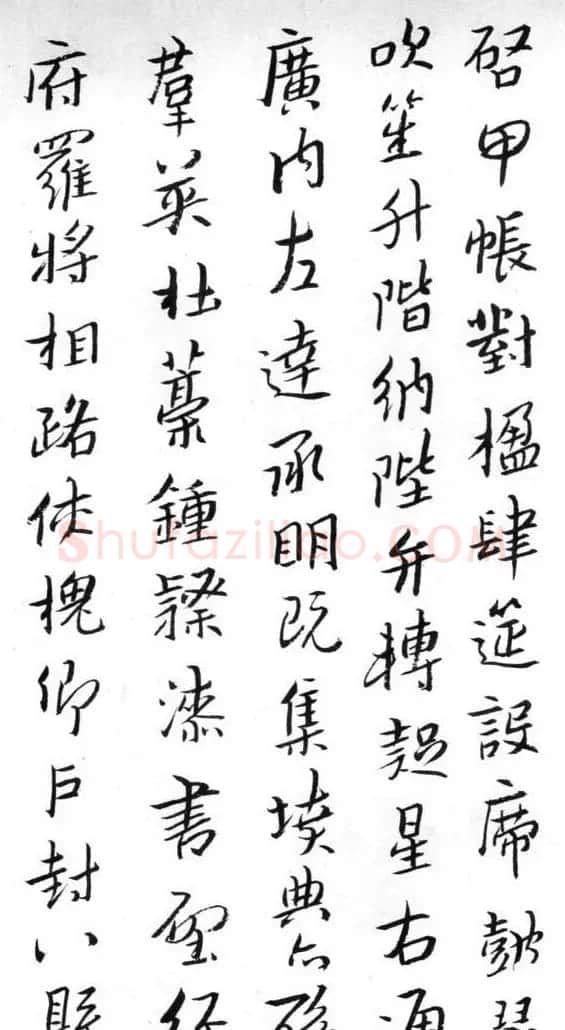 啓甲帳對楹肆筵設席皷瑟
吹笙升階納陛弁轉疑星右通
廣内左達承明既集墳典亦
羣英杜藁鍾隸漆書壁經
府羅將相路俠槐卿户封八縣
Shufaziliao.COM